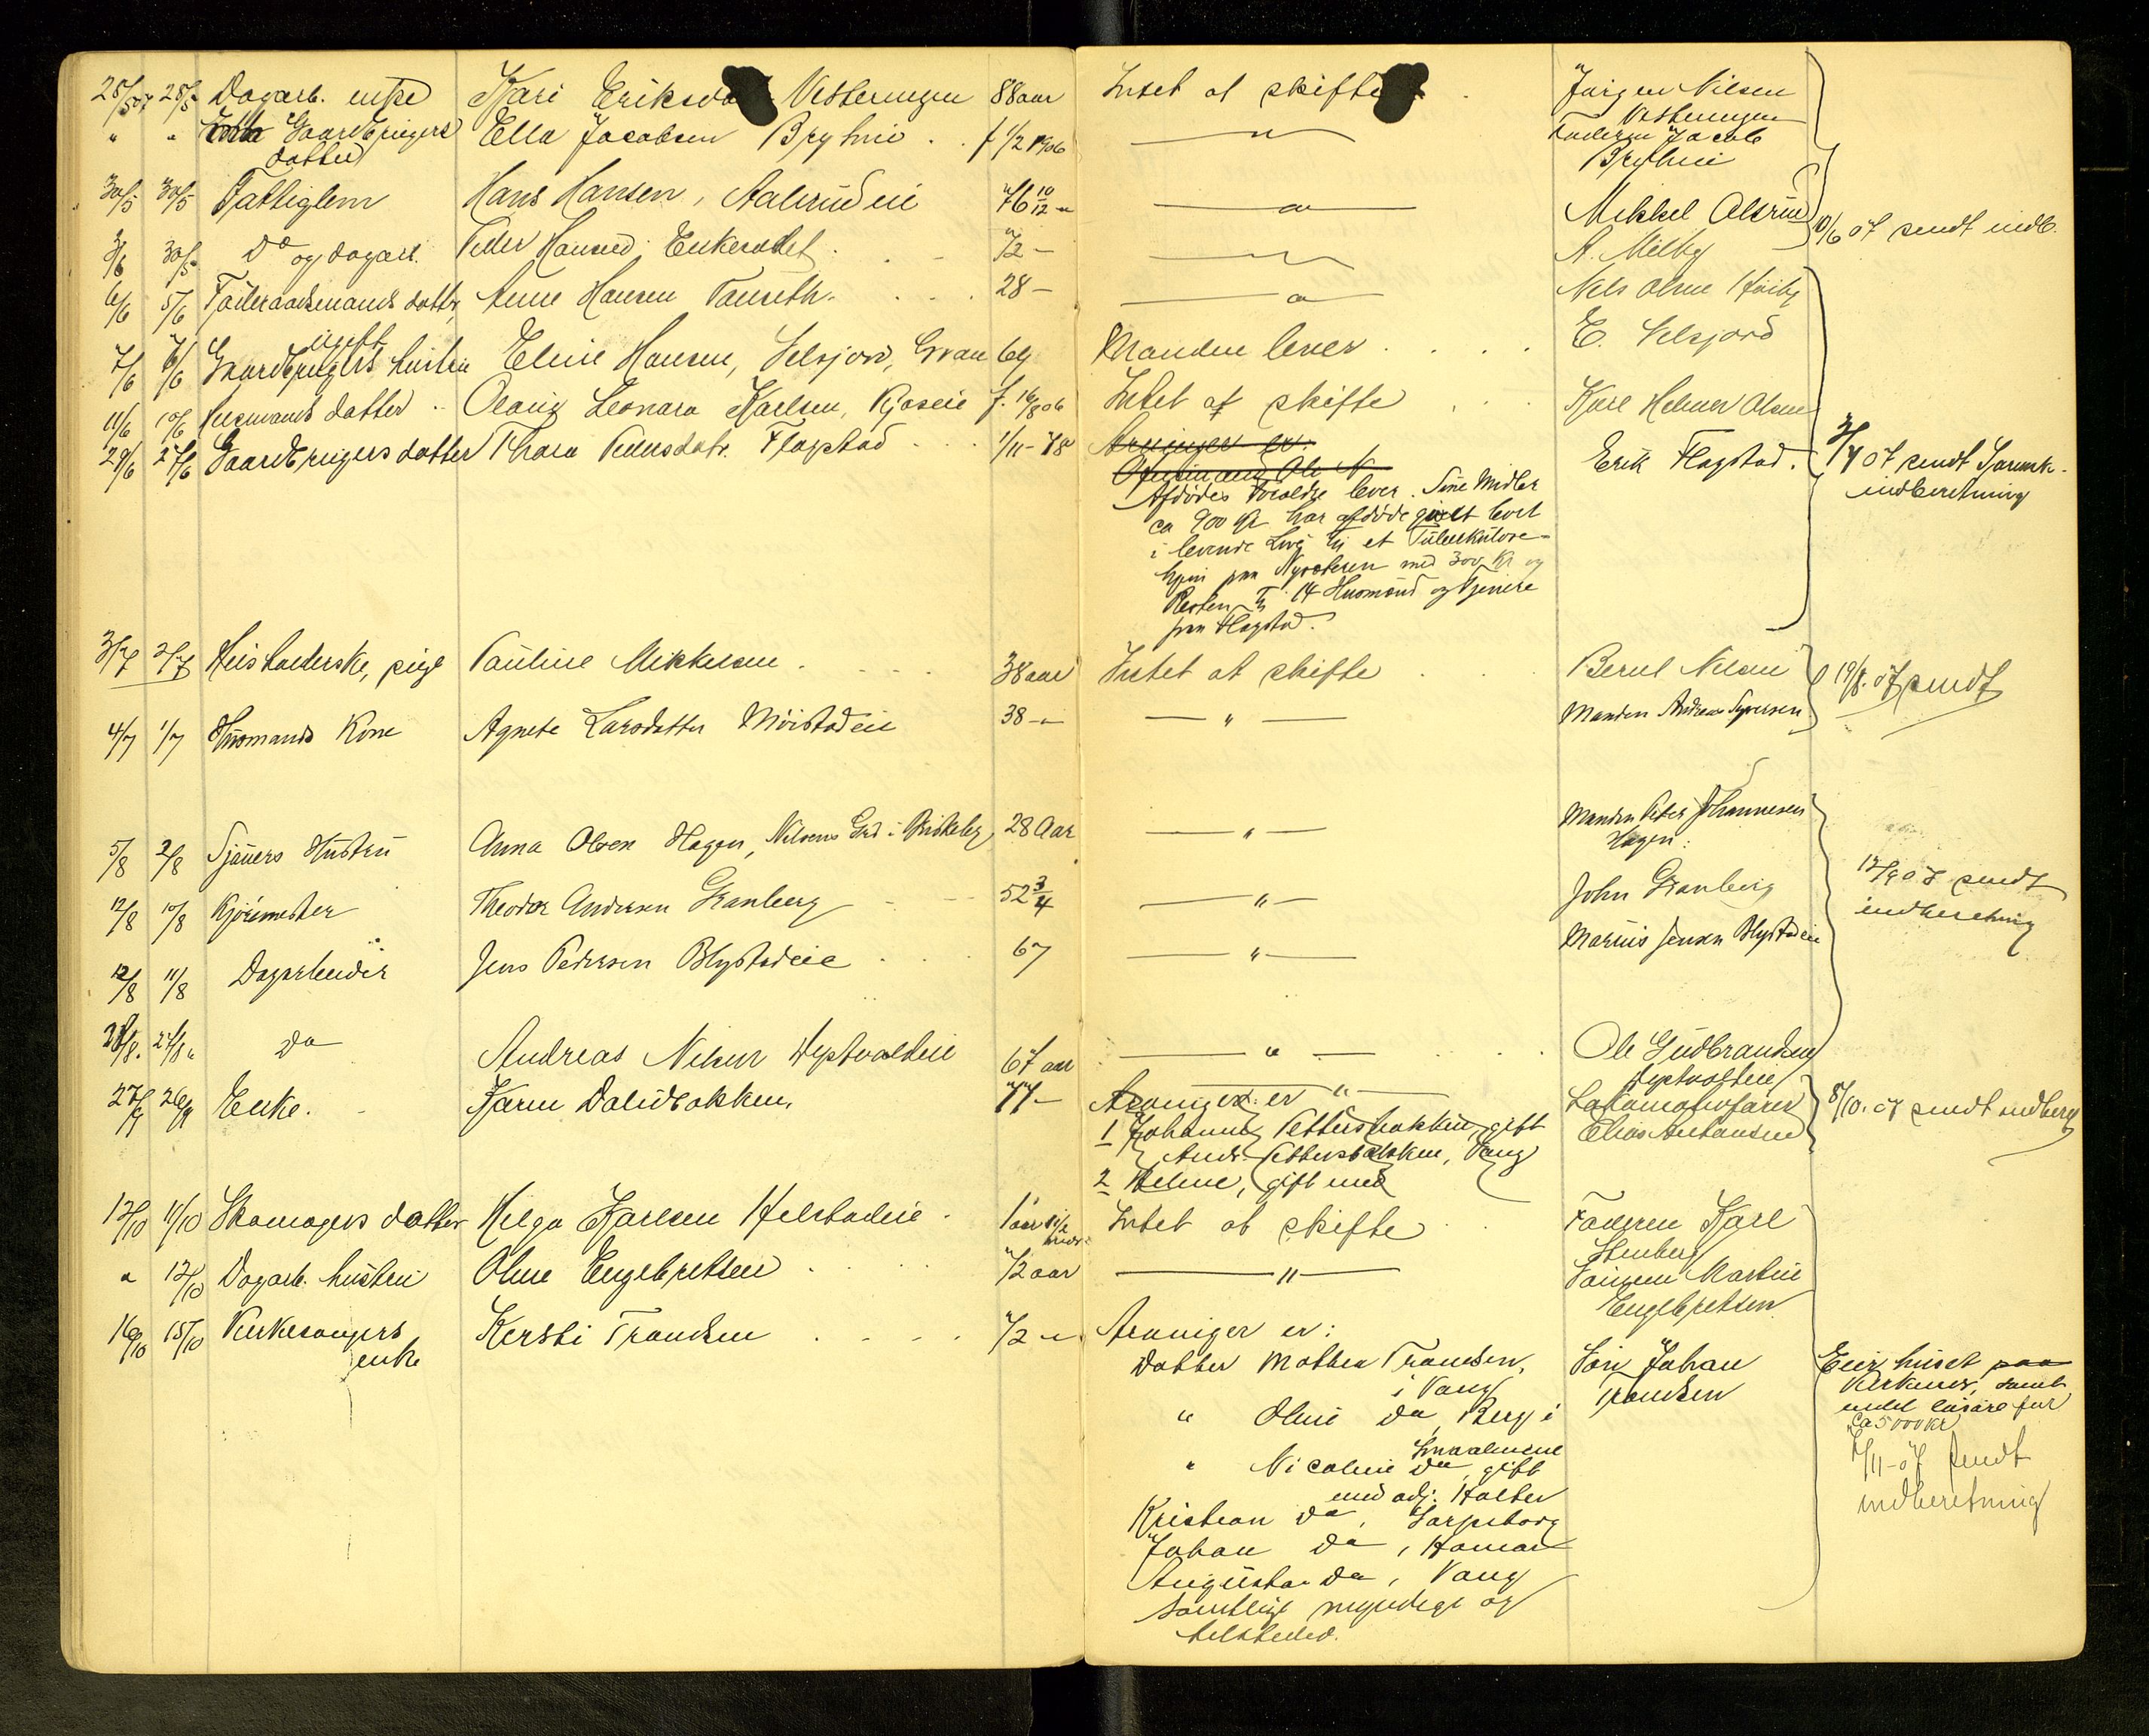 28/5 07 28/5 Dagarb. enke Kari Eriksda Vesteringen 88 aar Intet at skifte Jørgen Nilsen
Vesteringen
" " Gaardbrugers Ella Jacobsen Bryhni f 1/2 1906 — " — Faderen Jacob
datter Bryhni
30/5 30/5 Fattiglem Hans Hansen, Aalsrudeie 76 10/12 " — " — Mikkel Alsrud
3/6 30/5 Do og dagarb. Peder Hansen Enkerødet 72 — — " — A. Melby
10/6 07 sendt indb.
6/6 5/6 Føderaadsmands datter, Anne Hansen 28 — — " — Nils Olsen Høiby
ugift
7/6 7/6 Gaardbrugers hustru Eline Hansen, Selsjord, Gran 69 Manden lever E. Selsjord
11/6 10/6 Husmands datter Leonara Karlsen, f. 16/8 06 Intet at skifte Karl Helmer Olsen
29/6 27/6 Gaardbrugers datter Thora Pedersdatr. Flagstad 1/11 - 78 Arvinger er: Erik Flagstad.
Afdødes Forældre lever. Sine Midler
ca 900 Kr har afdøde givet bort
i levende Live til et Tuberkulose-
hjem paa med 300 Kr og
Resten til 14 Husmænd og Tjenere
paa Flagstad.
3/7 07 sendt
indberetning
3/7 2/7 Husholderske, pige Pauline Mikkelsen 38 aar Intet at skifte Bernt Nilsen
19/8. 07 sendt
4/7 1/7 Husmands Kone Agnete Larsdatter Møistadeie 38 — " — " — Manden Andreas Syversen
5/8 2/8 Sjauers Hustru Anna Olsen Hagen, Nilsens Grd i Briskeby 28 Aar — " — Manden Peder Johannesen
Hagen.
12/8 10/8 Kjøremester Theodor Andersen Granberg 52 3/4 — " — John Granberg
12/9 07 sendt
indberetning
12/8 11/8 Dagarbeider Jens Pedersen Blystadeie 67 — " — Marius Jensen Blystadeie
28/8. 27/8 " Do Andreas Nilsen 67 aar — " — Ole Gudbrandsen
27/9 26/9 Enke. Karen Dalidbakken, 77 — Arvinger er — " — Lokomotivfører
1 Johanne Pettersbakken, gift Elias Antonsen
Andr. Pettersbakken, Vang
2 Helene, gift med
8/10. 07 sendt indberg
12/10 11/10 Skomagers datter Helga Karlsen Helstadeie 1 aar Intet at skifte Faderen Karl
Stenberg
" 12/10 Dagarb. hustru Oline Engebretsen 72 aar — " — Sønnen Martin
Engebretsen
16/10 15/10 Kirkesangers Kersti Trondsen 72 " Arvinger er:
enke
Datter Mathea Trondsen, Søn Johan
i Vang Trondsen
" Oline Do, Berg i
Smaalenene
" Nicoline Do, gift
med adj. Holter
Kristian Do, Sarpsborg
Johan Do, Hamar
Augusta Do, Vang
samtlige myndige og
tilstede.
Eier huset paa
Kirkenær, samt
endel løsøre for
ca 5000 kr
/11 - 07 sendt
indberetning